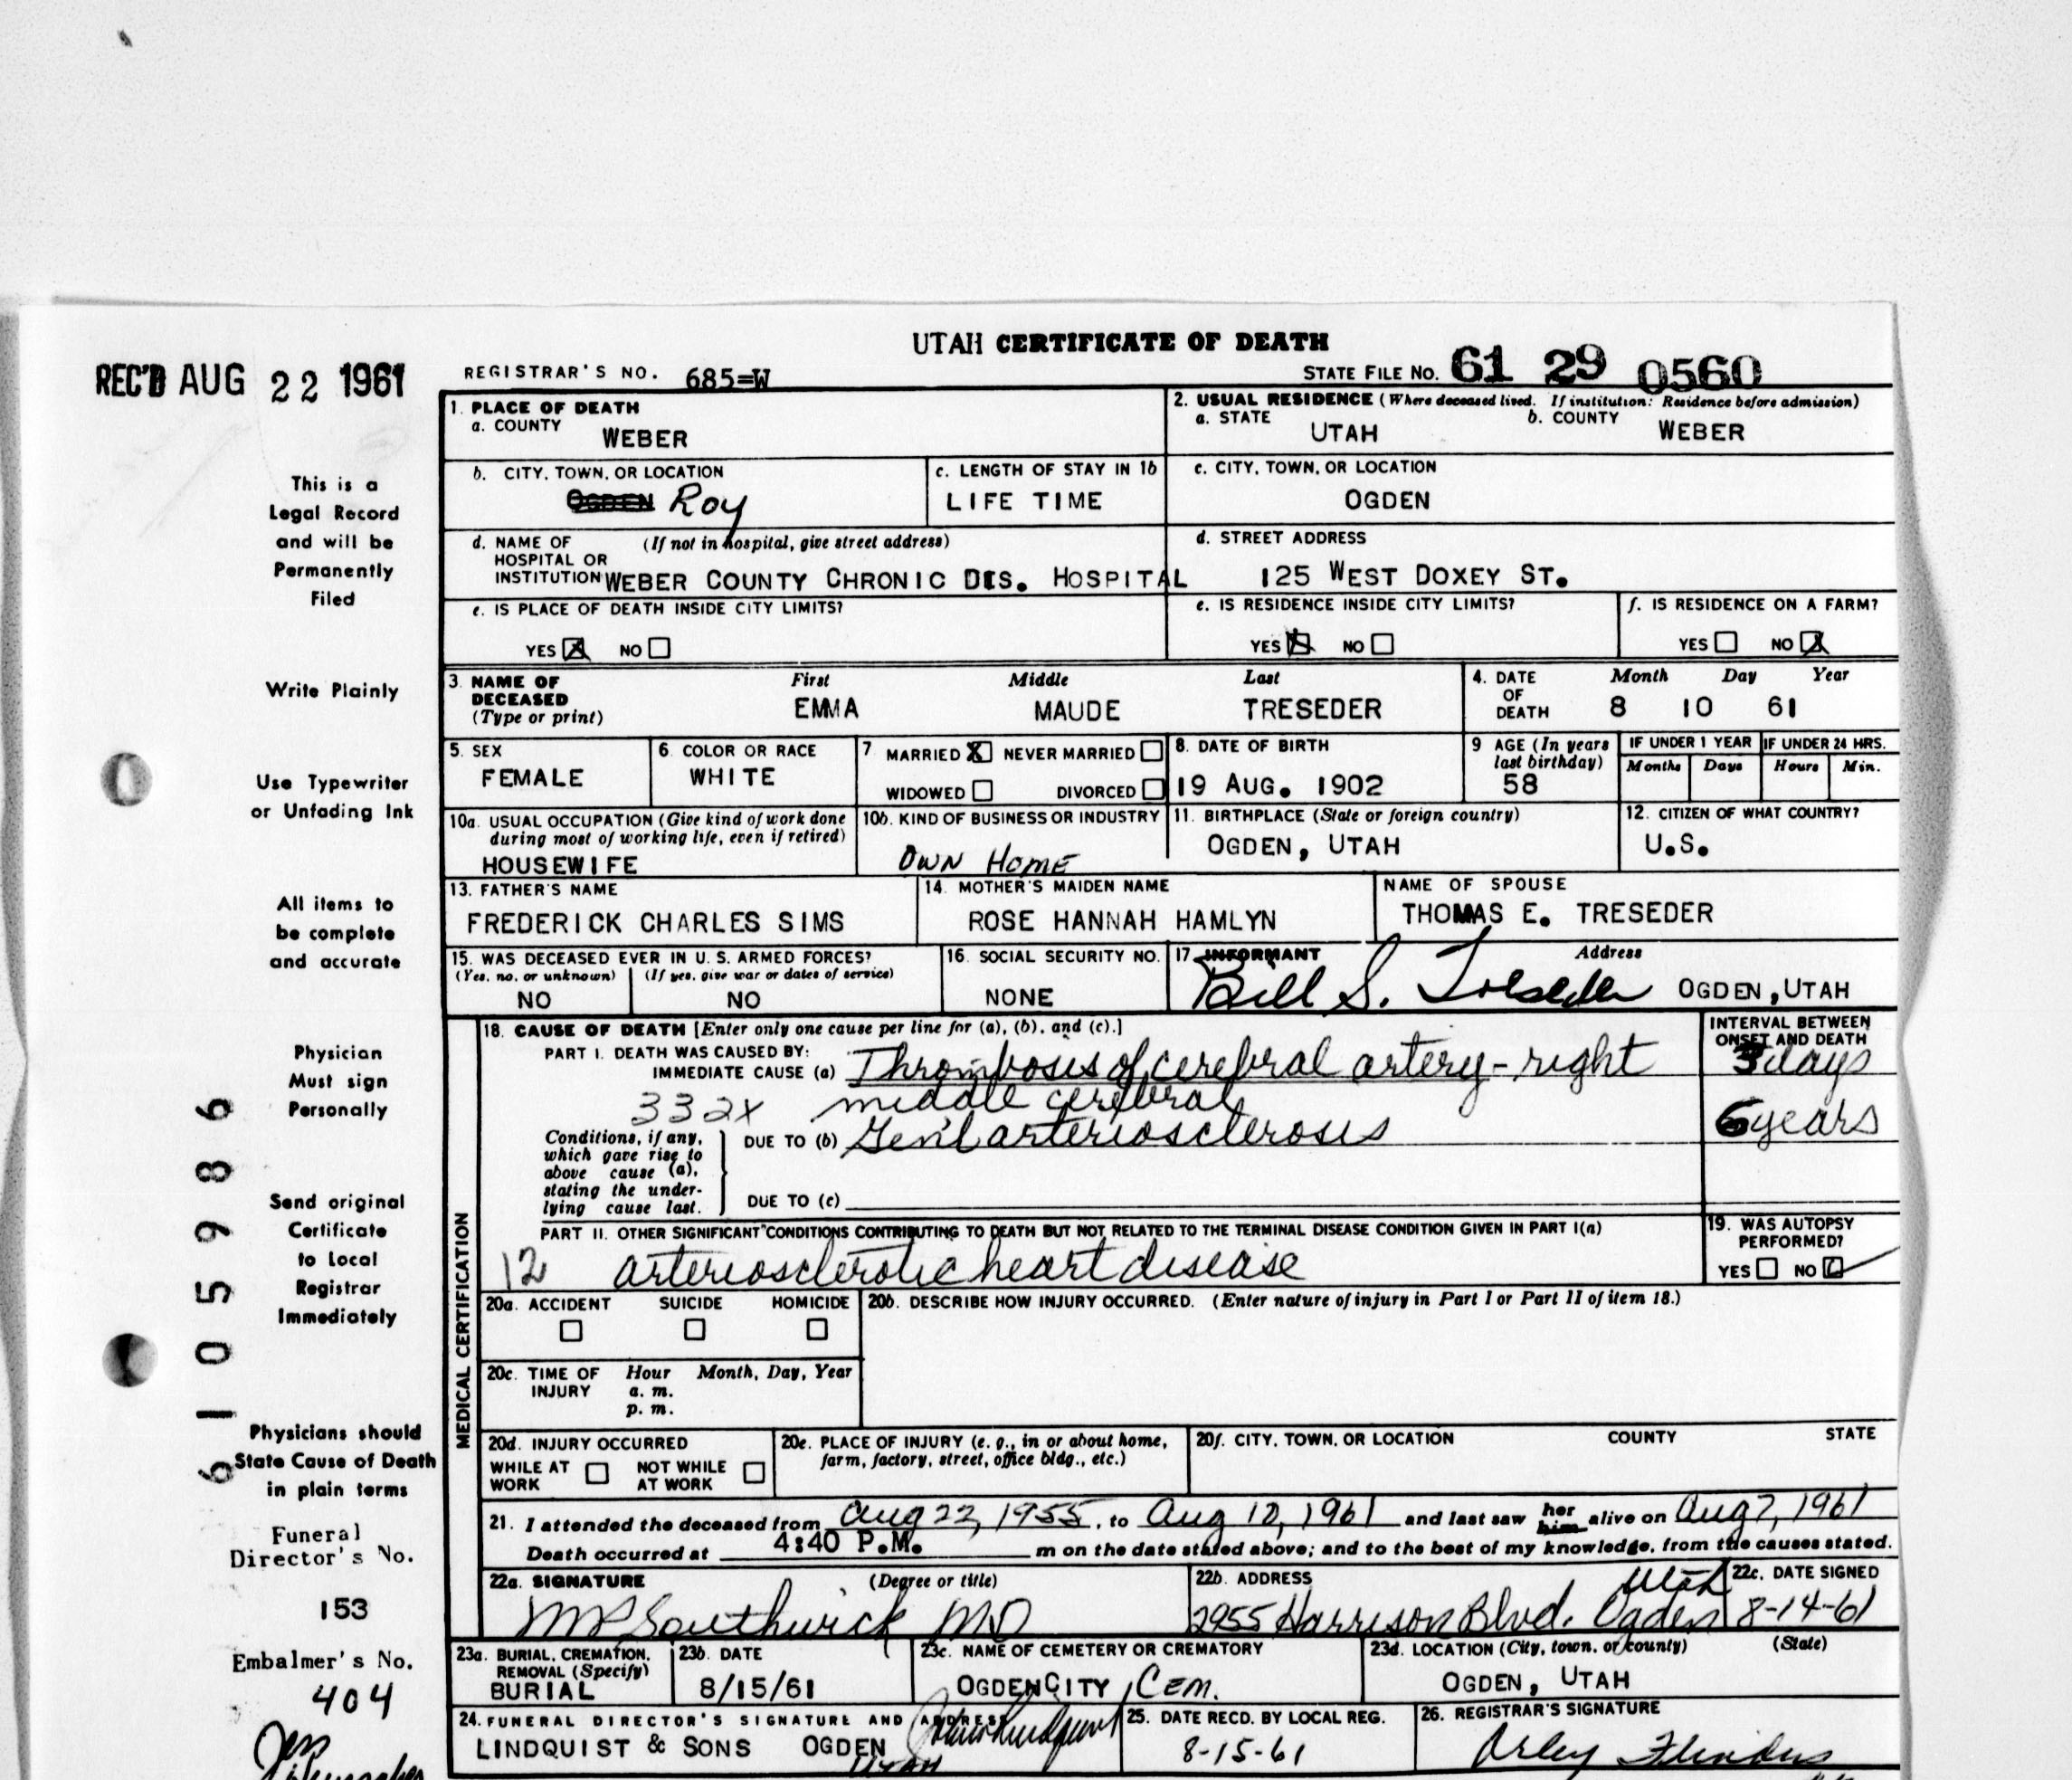 UTAH CERTIFICATE OF DEATH
REC'D AUG 22 1961
REGISTRAR'S NO. 685=W
STATE FILE NO. 61 29 0560
1. PLACE OF DEATH
a. COUNTY
WEBER
2. USUAL RESIDENCE (Where deceased lived. If institution: Residence before admission)
a. STATE UTAH b. COUNTY WEBER
b. CITY, TOWN, OR LOCATION
OGDEN Roy
c. LENGTH OF STAY IN 1b
LIFE TIME
c. CITY, TOWN, OR LOCATION
OGDEN
d. NAME OF HOSPITAL OR INSTITUTION (If not in hospital, give street address)
WEBER COUNTY CHRONIC DIS. HOSPITAL
d. STREET ADDRESS
125 WEST DOXEY ST.
e. IS PLACE OF DEATH INSIDE CITY LIMITS?
YES NO
e. IS RESIDENCE INSIDE CITY LIMITS?
YES NO
f. IS RESIDENCE ON A FARM?
YES NO
3. NAME OF DECEASED (Type or print)
First Middle Last
EMMA MAUDE TRESEDER
4. DATE OF DEATH
Month Day Year
8 10 61
5. SEX
FEMALE
6. COLOR OR RACE
WHITE
7. MARRIED X NEVER MARRIED
WIDOWED DIVORCED
8. DATE OF BIRTH
19 AUG. 1902
9 AGE (In years last birthday)
58
IF UNDER 1 YEAR IF UNDER 24 HRS.
Months Days Hours Min.
10a. USUAL OCCUPATION (Give kind of work done during most of working life, even if retired)
HOUSEWIFE
10b. KIND OF BUSINESS OR INDUSTRY
OWN HOME
11. BIRTHPLACE (State or foreign country)
OGDEN, UTAH
12. CITIZEN OF WHAT COUNTRY?
U.S.
13. FATHER'S NAME
FREDERICK CHARLES SIMS
14. MOTHER'S MAIDEN NAME
ROSE HANNAH HAMLYN
NAME OF SPOUSE
THOMAS E. TRESEDER
15. WAS DECEASED EVER IN U. S. ARMED FORCES?
(Yes, no, or unknown) (If yes, give war or dates of service)
NO NO
16. SOCIAL SECURITY NO.
NONE
17 INFORMANT Address
Bill S. Treseder OGDEN, UTAH
18. CAUSE OF DEATH [Enter only one cause per line for (a), (b), and (c).]
INTERVAL BETWEEN ONSET AND DEATH
PART I. DEATH WAS CAUSED BY:
IMMEDIATE CAUSE (a) Thrombosis of cerebral artery - right
3 days
332X middle cerebral
Conditions, if any, which gave rise to above cause (a), stating the underlying cause last.
DUE TO (b) Gen'l arteriosclerosis
6 years
DUE TO (c)
PART II. OTHER SIGNIFICANT CONDITIONS CONTRIBUTING TO DEATH BUT NOT RELATED TO THE TERMINAL DISEASE CONDITION GIVEN IN PART I(a)
12 arteriosclerotic heart disease
19. WAS AUTOPSY PERFORMED?
YES NO
MEDICAL CERTIFICATION
20a. ACCIDENT SUICIDE HOMICIDE
20b. DESCRIBE HOW INJURY OCCURRED. (Enter nature of injury in Part I or Part II of item 18.)
20c. TIME OF INJURY Hour Month, Day, Year
a. m.
p. m.
20d. INJURY OCCURRED
WHILE AT WORK NOT WHILE AT WORK
20e. PLACE OF INJURY (e. g., in or about home, farm, factory, street, office bldg., etc.)
20f. CITY, TOWN, OR LOCATION COUNTY STATE
21. I attended the deceased from Aug 22, 1955, to Aug 10, 1961 and last saw her him alive on Aug 7, 1961
Death occurred at 4:40 P.M. m on the date stated above; and to the best of my knowledge, from the causes stated.
22a. SIGNATURE (Degree or title)
MP Southwick MD
22b. ADDRESS
2955 Harrison Blvd. Ogden Utah
22c. DATE SIGNED
8-14-61
23a. BURIAL, CREMATION, REMOVAL (Specify)
BURIAL
23b. DATE
8/15/61
23c. NAME OF CEMETERY OR CREMATORY
OGDEN CITY CEM.
23d. LOCATION (City, town, or county) (State)
OGDEN, UTAH
24. FUNERAL DIRECTOR'S SIGNATURE AND ADDRESS
LINDQUIST & SONS OGDEN
UTAH
25. DATE RECD. BY LOCAL REG.
8-15-61
26. REGISTRAR'S SIGNATURE
Orley Flinders
This is a
Legal Record
and will be
Permanently
Filed
Write Plainly
Use Typewriter
or Unfading Ink
All items to
be complete
and accurate
Physician
Must sign
Personally
Send original
Certificate
to Local
Registrar
Immediately
Physicians should
State Cause of Death
in plain terms
Funeral
Director's No.
153
Embalmer's No.
404
6105986